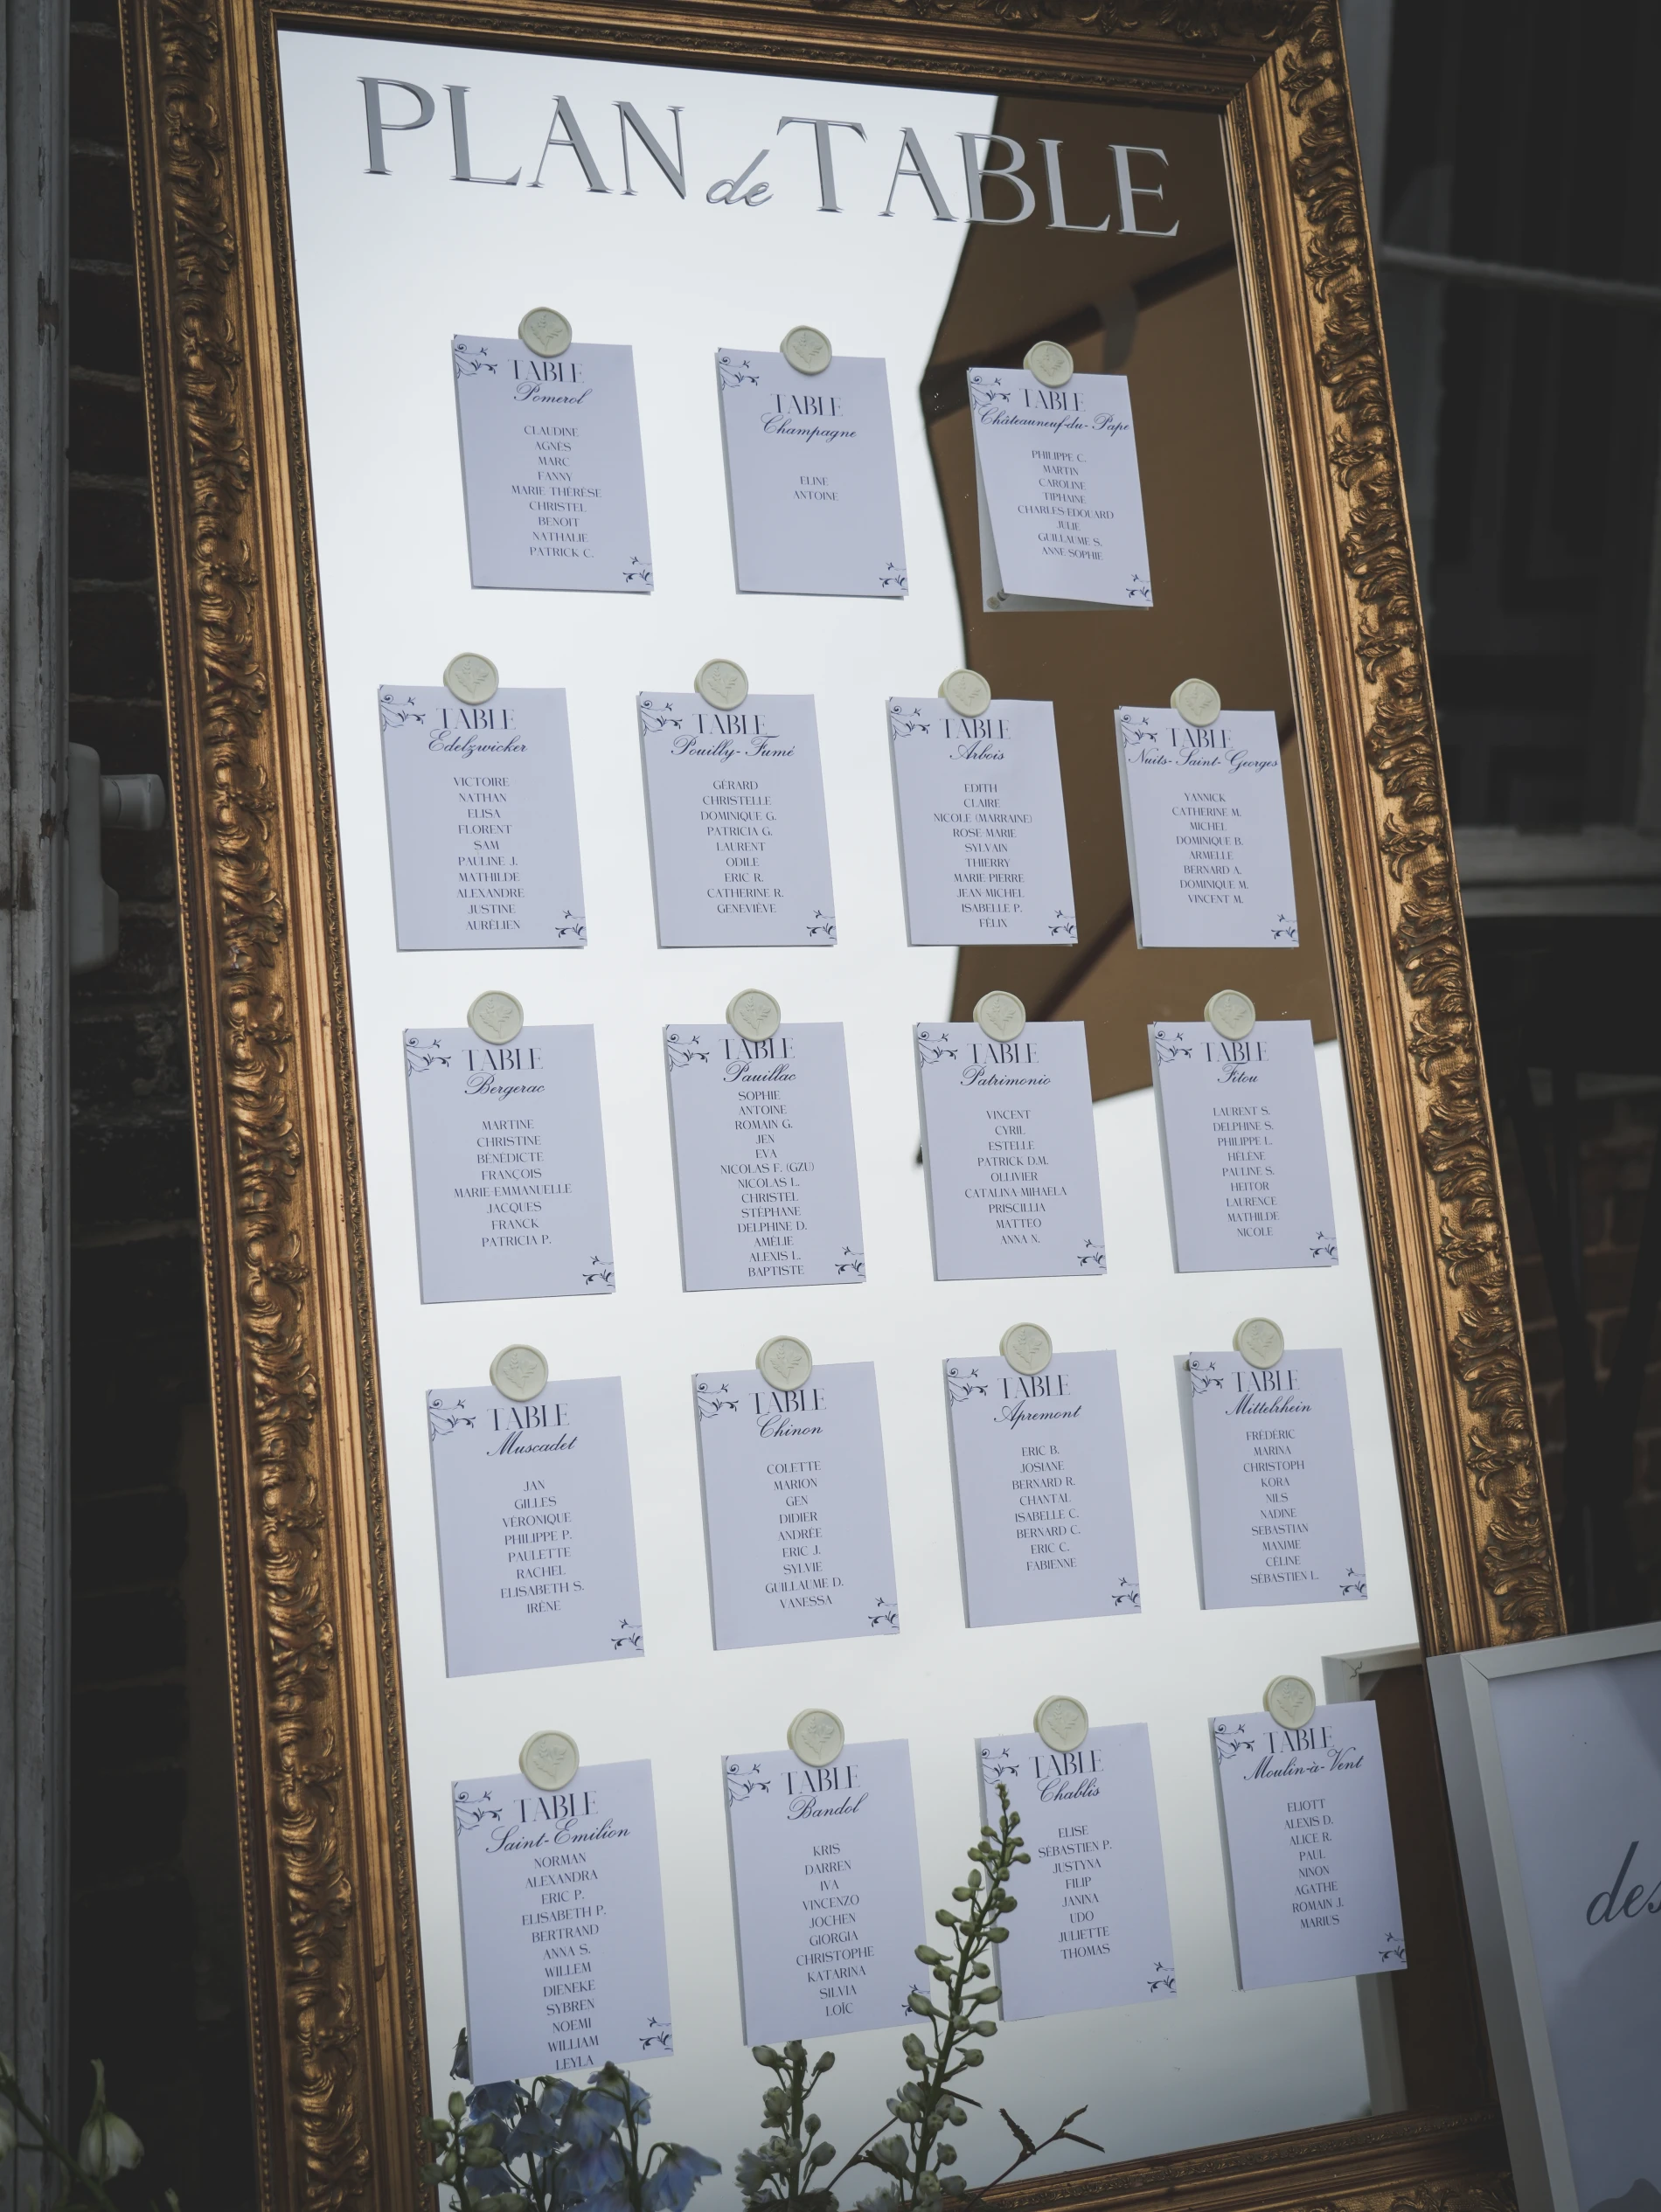 PLAN de TABLE
TABLE
Pomerol
CLAUDINE
AGNÈS
MARC
FANNY
MARIE-THÉRÈSE
CHRISTEL
BENOIT
NATHALIE
PATRICK C.
TABLE
Champagne
ELINE
ANTOINE
TABLE
Châteauneuf-du-Pape
PHILIPPE C.
MARTIN
CAROLINE
TIPHAINE
CHARLES-EDOUARD
JULIE
GUILLAUME S.
ANNE-SOPHIE
TABLE
Edelzwicker
VICTOIRE
NATHAN
ELISA
FLORENT
SAM
PAULINE J.
MATHILDE
ALEXANDRE
JUSTINE
AURÉLIEN
TABLE
Pouilly-Fumé
GÉRARD
CHRISTELLE
DOMINIQUE G.
PATRICIA G.
LAURENT
ODILE
ERIC R.
CATHERINE R.
GENEVIÈVE
TABLE
Arbois
EDITH
CLAIRE
NICOLE (MARRAINE)
ROSE-MARIE
SYLVAIN
THIERRY
MARIE-PIERRE
JEAN-MICHEL
ISABELLE P.
FÉLIX
TABLE
Nuits-Saint-Georges
YANNICK
CATHERINE M.
MICHEL
DOMINIQUE B.
ARMELLE
BERNARD A.
DOMINIQUE M.
VINCENT M.
TABLE
Bergerac
MARTINE
CHRISTINE
BÉNÉDICTE
FRANÇOIS
MARIE-EMMANUELLE
JACQUES
FRANCK
PATRICIA P.
TABLE
Pauillac
SOPHIE
ANTOINE
ROMAIN G.
JEN
EVA
NICOLAS F. (GZU)
NICOLAS L.
CHRISTEL
STÉPHANE
DELPHINE D.
AMÉLIE
ALEXIS L.
BAPTISTE
TABLE
Patrimonio
VINCENT
CYRIL
ESTELLE
PATRICK D.M.
OLLIVIER
CATALINA-MIHAELA
PRISCILLIA
MATTEO
ANNA N.
TABLE
Fitou
LAURENT S.
DELPHINE S.
PHILIPPE L.
HÉLÈNE
PAULINE S.
HEITOR
LAURENCE
MATHILDE
NICOLE
TABLE
Muscadet
JAN
GILLES
VÉRONIQUE
PHILIPPE P.
PAULETTE
RACHEL
ELISABETH S.
IRÈNE
TABLE
Chinon
COLETTE
MARION
GEN
DIDIER
ANDRÉE
ERIC J.
SYLVIE
GUILLAUME D.
VANESSA
TABLE
Apremont
ERIC B.
JOSIANE
BERNARD R.
CHANTAL
ISABELLE C.
BERNARD C.
ERIC C.
FABIENNE
TABLE
Mittelrhein
FRÉDÉRIC
MARINA
CHRISTOPH
KORA
NILS
NADINE
SEBASTIAN
MAXIME
CÉLINE
SÉBASTIEN L.
TABLE
Saint-Emilion
NORMAN
ALEXANDRA
ERIC P.
ELISABETH P.
BERTRAND
ANNA S.
WILLEM
DIENEKE
SYBREN
NOEMI
WILLIAM
LEYLA
TABLE
Bandol
KRIS
DARREN
IVA
VINCENZO
JOCHEN
GIORGIA
CHRISTOPHE
KATARINA
SILVIA
LOÏC
TABLE
Chablis
ELISE
SÉBASTIEN P.
JUSTYNA
FILIP
JANINA
UDO
JULIETTE
THOMAS
TABLE
Moulin-à-Vent
ELIOTT
ALEXIS D.
ALICE R.
PAUL
NINON
AGATHE
ROMAIN J.
MARIUS
des